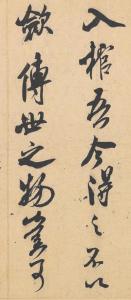 入棺吾今得之不以
歛傳世之物豈可